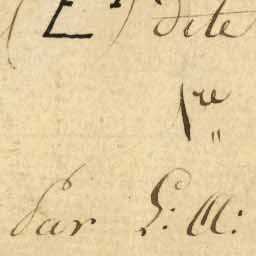 (E) dite
1re
Par G: M: